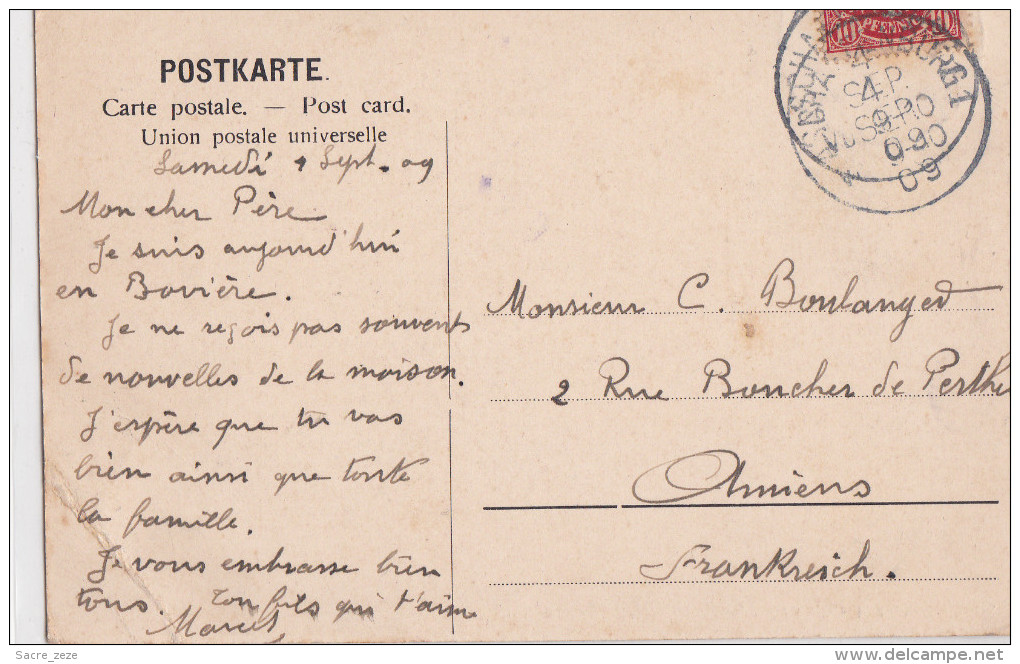 POSTKARTE.
Carte postale. — Post card.
Union postale universelle
Samedi 4 Sept. 09
Mon cher Père
Je suis aujourd'hui
en Bavière.
Je ne reçois pas souvent
de nouvelles de la maison.
J'espère que tu vas
bien ainsi que toute
la famille.
Je vous embrasse bien
tous. Ton fils qui t'aime
Marcel
10 PFENNIG 10
SEP.
09
Monsieur C. Boulanger
2 Rue Boucher de Perthe
Amiens
Frankreich.
Sacre_zeze